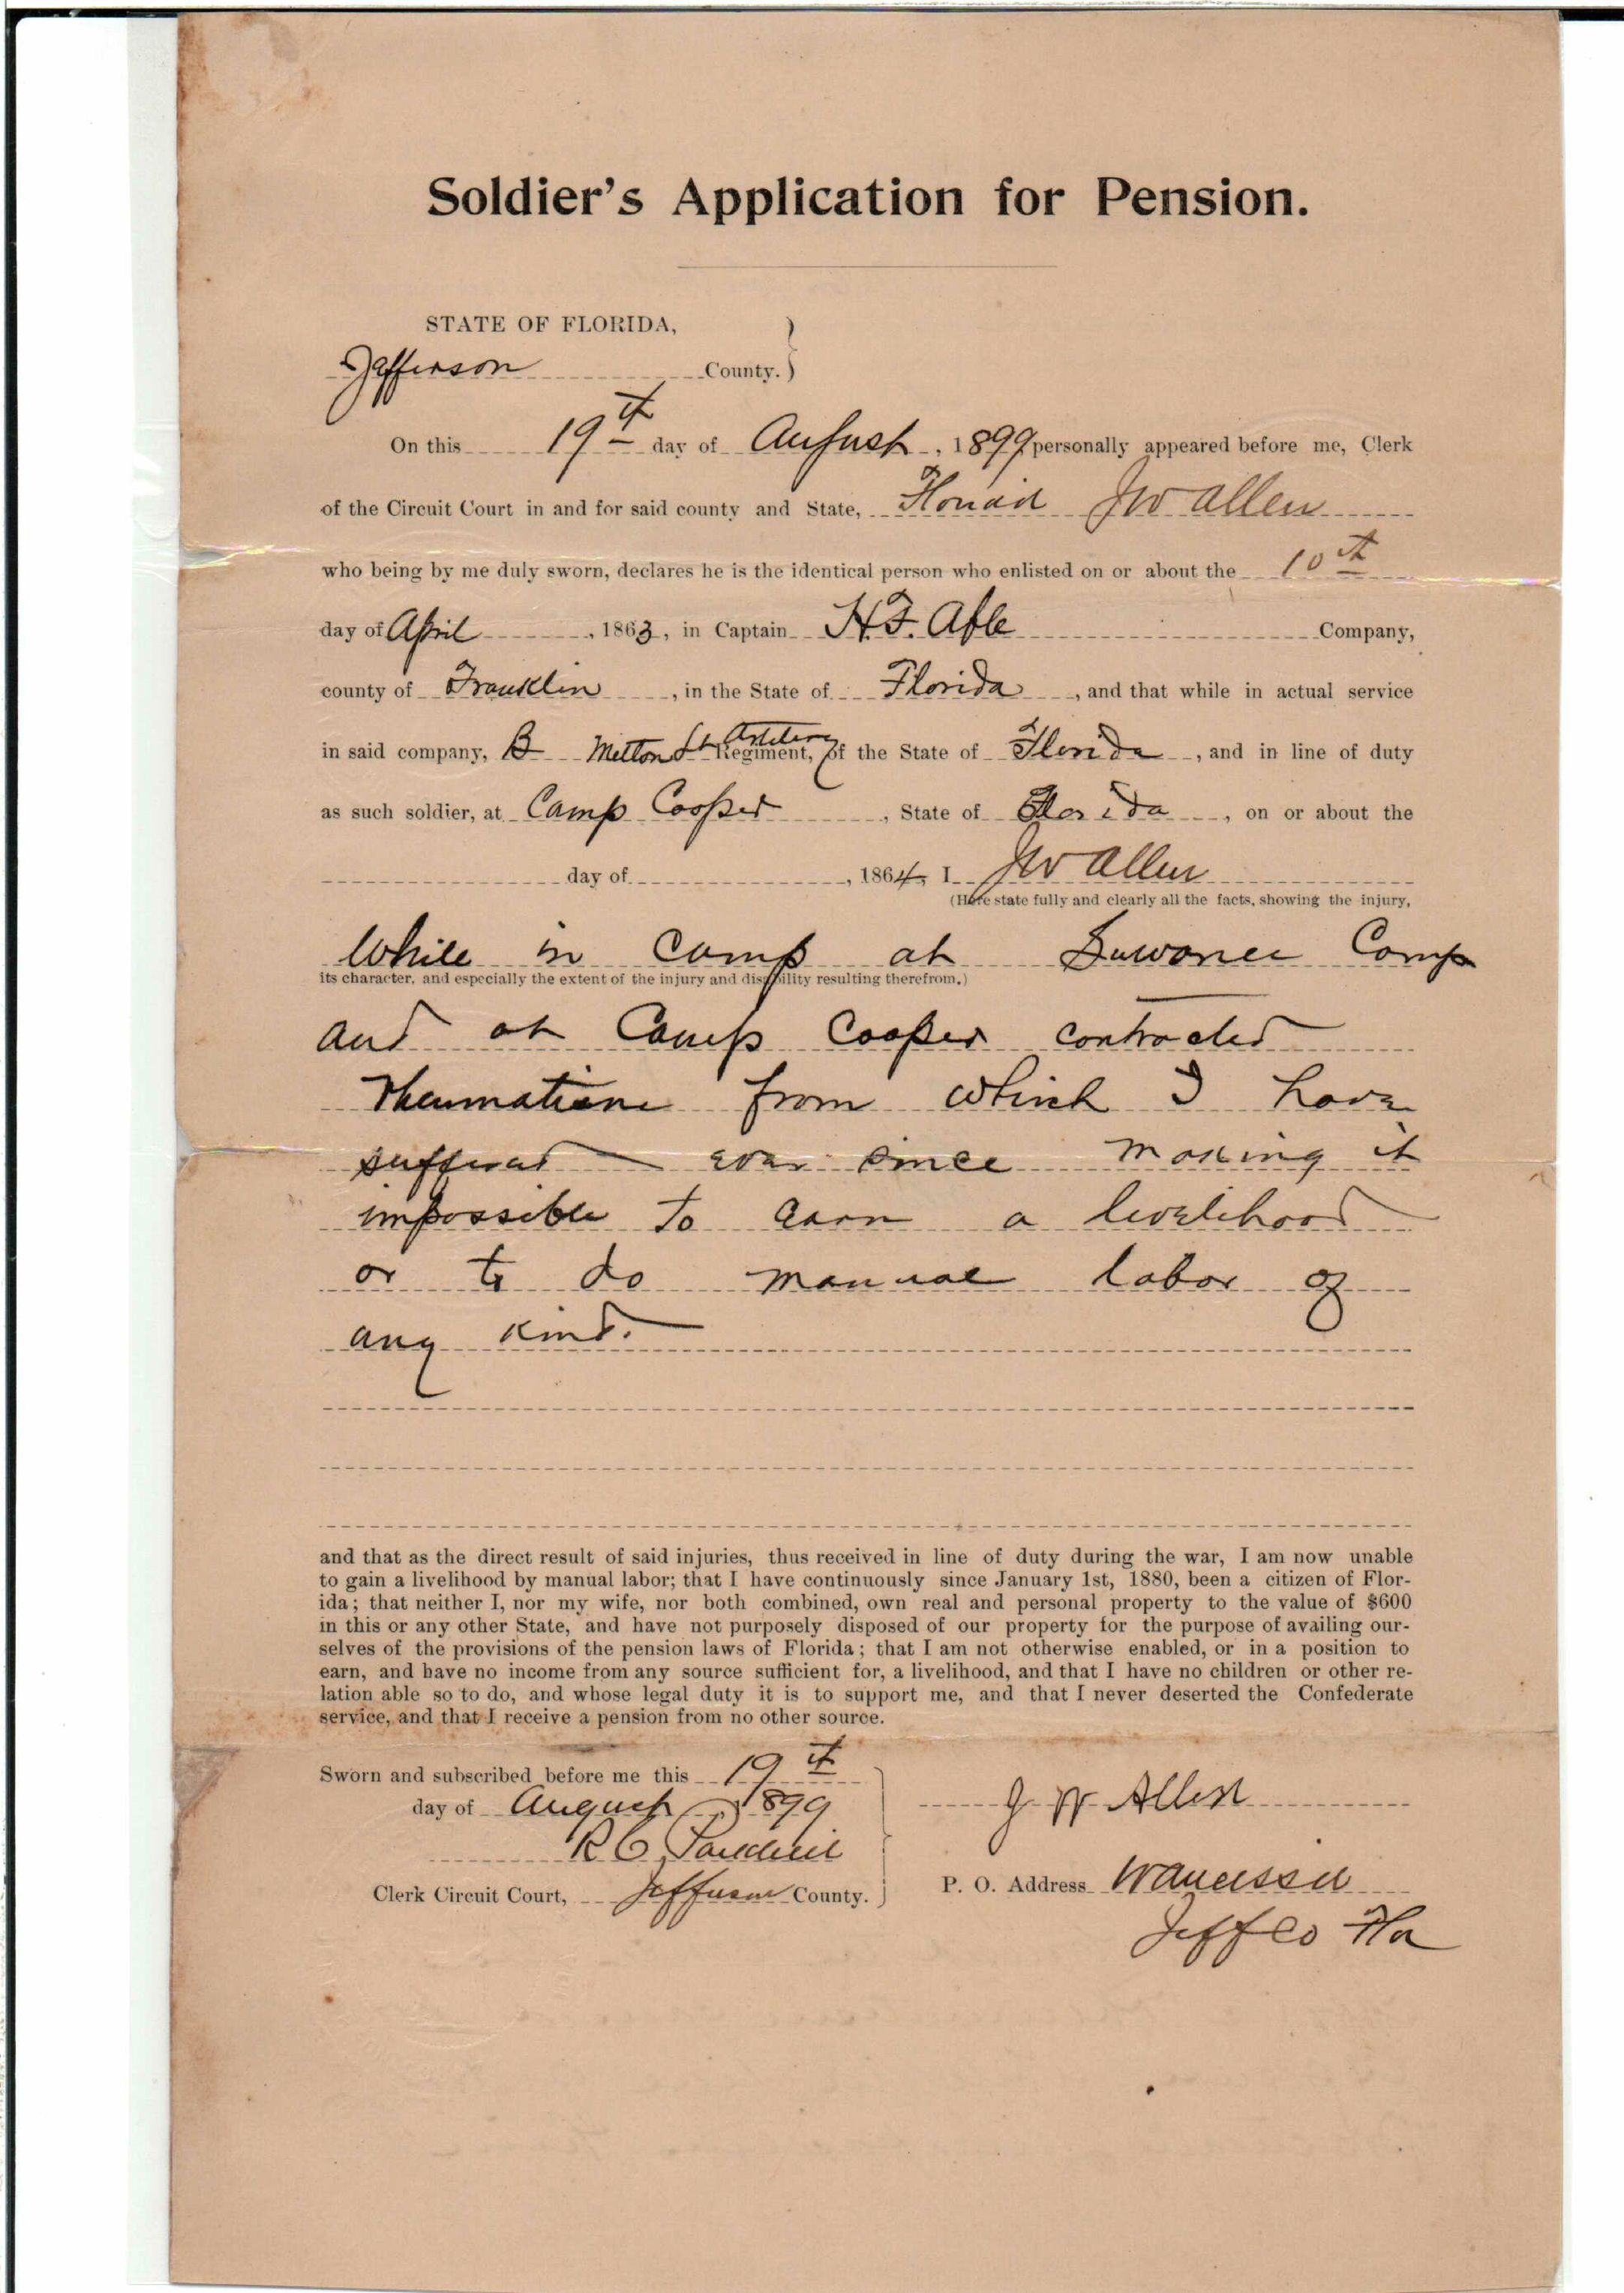 Soldier's Application for Pension.
STATE OF FLORIDA,
Jefferson County.
On this 19th day of August, 1899 personally appeared before me, Clerk
of the Circuit Court in and for said county and State, JW Allen
who being by me duly sworn, declares he is the identical person who enlisted on or about the 10th
day of April, 1863, in Captain H.F. Able Company,
county of Franklin, in the State of Florida, and that while in actual service
in said company, B Milton Lt Artillery Regiment, of the State of Florida, and in line of duty
as such soldier, at Camp Cooper, State of Florida, on or about the
day of , 1864, I JW Allen
(Here state fully and clearly all the facts, showing the injury,
While in Camp at Suwanee Camp
its character, and especially the extent of the injury and disability resulting therefrom.)
and at Camp Cooper contracted
Rheumatism from which I have
suffered ever since making it
impossible to earn a livelihood
or to do manual labor of
any kind.
and that as the direct result of said injuries, thus received in line of duty during the war, I am now unable
to gain a livelihood by manual labor; that I have continuously since January 1st, 1880, been a citizen of Flor-
ida; that neither I, nor my wife, nor both combined, own real and personal property to the value of $600
in this or any other State, and have not purposely disposed of our property for the purpose of availing our-
selves of the provisions of the pension laws of Florida; that I am not otherwise enabled, or in a position to
earn, and have no income from any source sufficient for, a livelihood, and that I have no children or other re-
lation able so to do, and whose legal duty it is to support me, and that I never deserted the Confederate
service, and that I receive a pension from no other source.
Sworn and subscribed before me this 19th
day of August, 1899
J W Allen
R C
Clerk Circuit Court, Jefferson County.
P. O. Address Waucissa
Jeff Co Fla